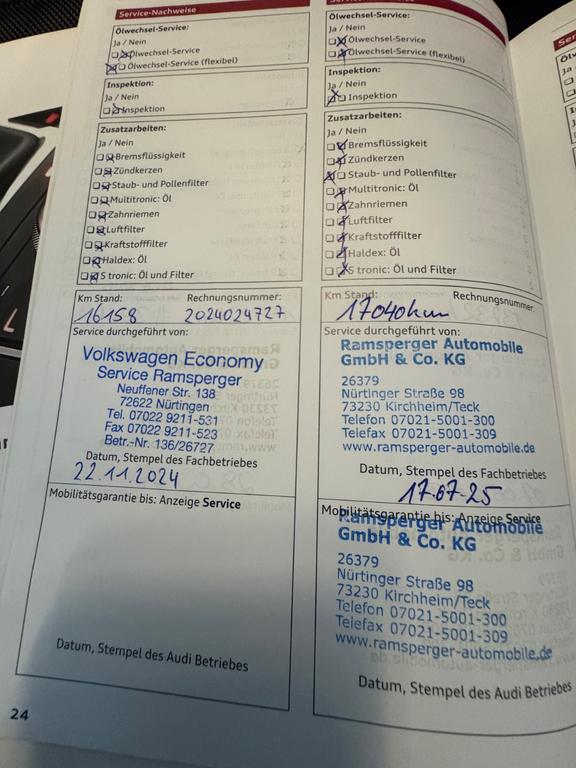 Service-Nachweise
Ölwechsel-Service:
Ja / Nein
Ölwechsel-Service
Ölwechsel-Service (flexibel)
Inspektion:
Ja / Nein
Inspektion
Zusatzarbeiten:
Ja / Nein
Bremsflüssigkeit
Zündkerzen
Staub- und Pollenfilter
Multitronic: Öl
Zahnriemen
Luftfilter
Kraftstofffilter
Haldex: Öl
S tronic: Öl und Filter
Km Stand: Rechnungsnummer:
16158 2024024727
Service durchgeführt von:
Volkswagen Economy
Service Ramsperger
Neuffener Str. 138
72622 Nürtingen
Tel. 07022 9211-531
Fax 07022 9211-523
Betr.-Nr. 136/26727
Datum, Stempel des Fachbetriebes
22.11.2024
Mobilitätsgarantie bis: Anzeige Service
Datum, Stempel des Audi Betriebes
24
Ölwechsel-Service:
Ja / Nein
Ölwechsel-Service
Ölwechsel-Service (flexibel)
Inspektion:
Ja / Nein
Inspektion
Zusatzarbeiten:
Ja / Nein
Bremsflüssigkeit
Zündkerzen
Staub- und Pollenfilter
Multitronic: Öl
Zahnriemen
Luftfilter
Kraftstofffilter
Haldex: Öl
S tronic: Öl und Filter
Km Stand: Rechnungsnummer:
17040km
Service durchgeführt von:
Ramsperger Automobile
GmbH & Co. KG
26379
Nürtinger Straße 98
73230 Kirchheim/Teck
Telefon 07021-5001-300
Telefax 07021-5001-309
www.ramsperger-automobile.de
Datum, Stempel des Fachbetriebes
17.07.25
Mobilitätsgarantie bis: Anzeige Service
Ramsperger Automobile
GmbH & Co. KG
26379
Nürtinger Straße 98
73230 Kirchheim/Teck
Telefon 07021-5001-300
Telefax 07021-5001-309
www.ramsperger-automobile.de
Datum, Stempel des Audi Betriebes